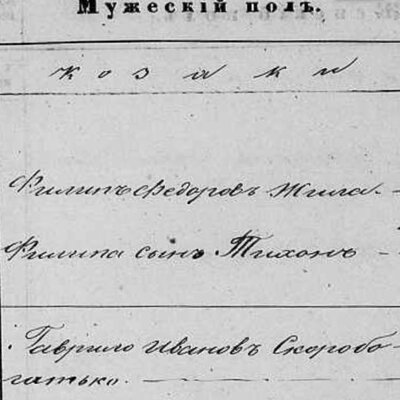 Мужескій полъ.
козаки
Филипъ Федоровъ Жила
Филипа сынъ Тихонъ
Гаврило Ивановъ Скоробо-
гатько.